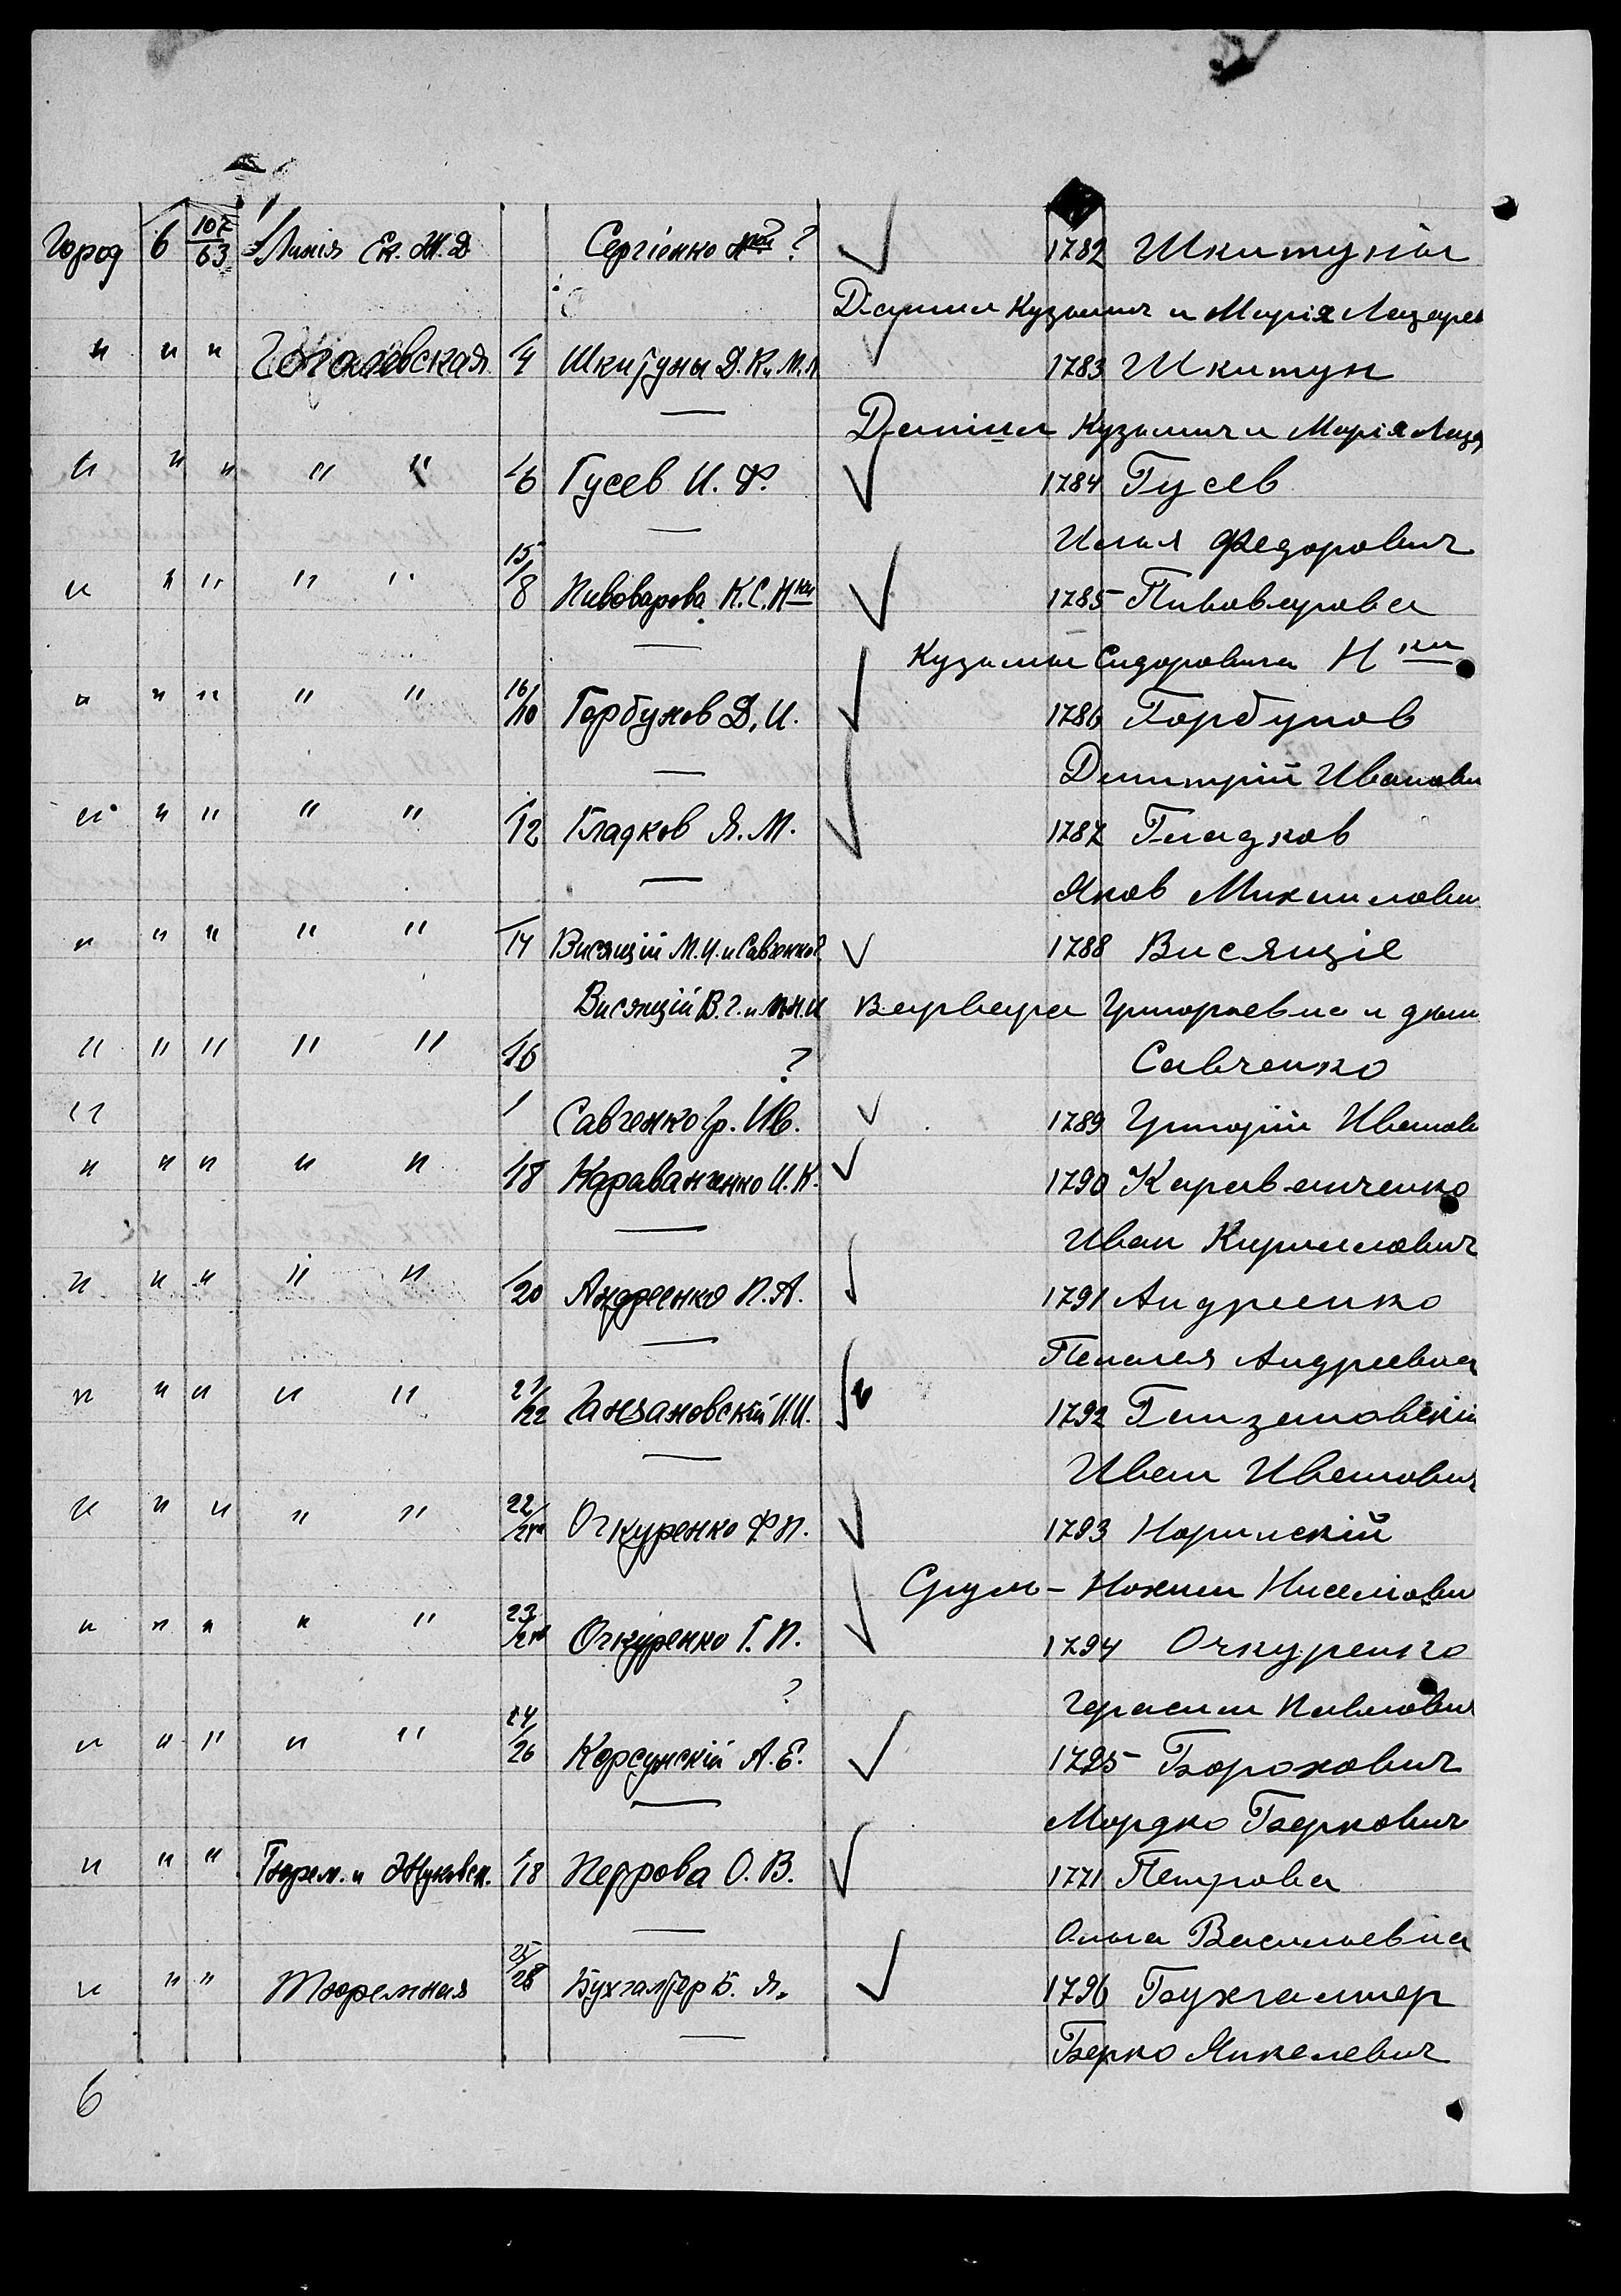 Город 6 107/63 Линія Ек. Ж. Д. Сергіенко ? 1782 Шкитуны
Данил Кузьмич и Марія Лазарев
" " " Гоголевская 4 Шкитуны Д. К. и М. Л. 1783 Шкитун
Данил Кузьмич и Марія Лаза
" " " " " 6 Гусев И. Ф. 1784 Гусев
Илья Федорович
" " " " " 15/8 Пивоварова К. С. Н-ки 1785 Пивоварова
Кузьмы Сидоровича Н-ки
" " " " " 16/10 Горбунов Д. И. 1786 Горбунов
Дмитрій Иванови
" " " " " 12 Гладков Я. М. 1787 Гладков
Яков Михаилович
" " " " " 14 Висящій М. И. и Савченко 1788 Висящіе
Висящій В. Г. и Варвара Григорьевна и
" " " " " 16 ? Савченко
" 1 Савченко Гр. Ив. 1789 Григорій Иванов
" " " " " 18 Караванченко И. К. 1790 Караванченко
Иван Кириллович
" " " " " 20 Андреенко П. А. 1791 Андреенко
Пелагея Андреевна
" " " " " 21/22 Ганзановскій И. И. 1792 Ганзановскій
Иван Иванович
" " " " " 22 Очкуренко Ф. П. 1793 Норинскій
Срул - Нохим Ниселіови
" " " " " 23 Очкуренко Г. П. 1794 Очкуренко
? Герасим Павлович
" " " " " 24/26 Корсунскій А. Е. 1795 Борохович
Мордко Беркович
" " " Тюрем. и Жуковск. 18 Петрова О. В. 1771 Петрова
Ольга Васильевна
" " " Тюремная 25/28 Бухгалтер Б. Я. 1796 Бухгалтер
Берко Янкелевич
6